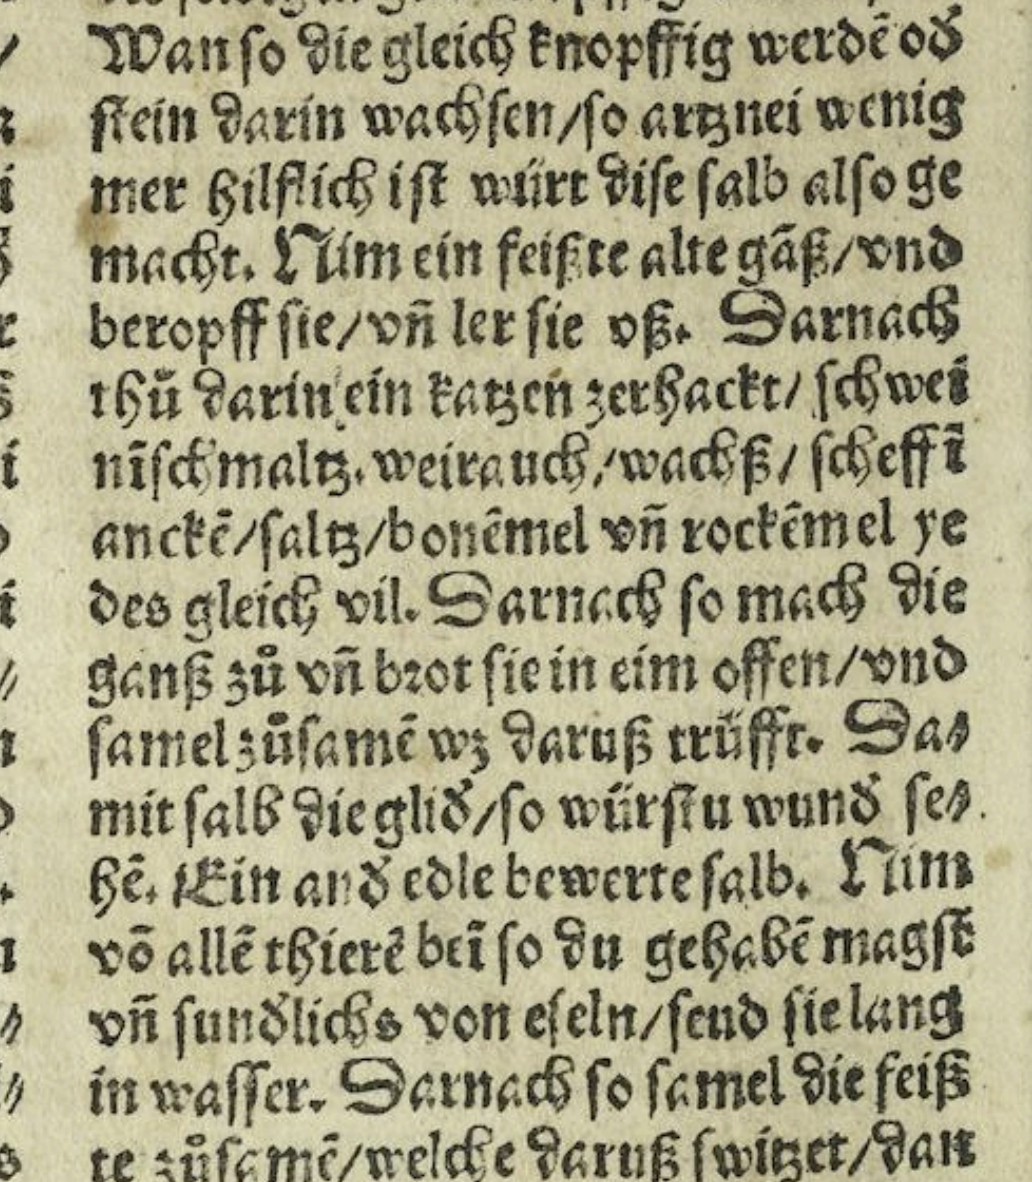 Wan so die gleich knopffig werdē od̕
stein darin wachsen/so artznei wenig
mer hilflich ist würt dise salb also ge
macht. Nim ein feißte alte gāß/vnd
beropff sie/vn̄ ler sie vß. Darnach
thů darin ein katzen zerhackt/ schwei
nīschmaltz. weirauch/wachß/ scheffī
anckē/saltz/bonēmel vn̄ rockēmel ye
des gleich vil. Darnach so mach die
ganß zů vn̄ brot sie in eim offen/vnd
samel zůsamē wz daruß trüfft. Da⸗
mit salb die glid̕/so würstu wund̕ se⸗
hē. Ein and̕ edle bewerte salb. Nim
vō allē thierē beī so du gehabē magst
vn̄ sund̕lichs von eseln/seud sie lang
in wasser. Darnach so samel die feiß
te zůsamē/welche daruß switzet/dan